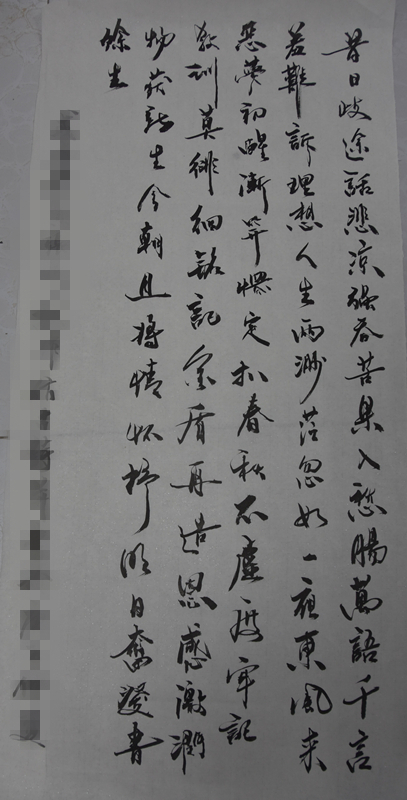 昔日歧途話悲涼強吞苦果入愁腸萬語千言
羞難訴理想人生兩渺茫忽如一夜東風来
惡夢初醒漸定春秋不虛度牢記
教訓莫徘徊銘記金盾再造恩感激潤
物获新生今朝且將情怀抒明日奮發書
餘生